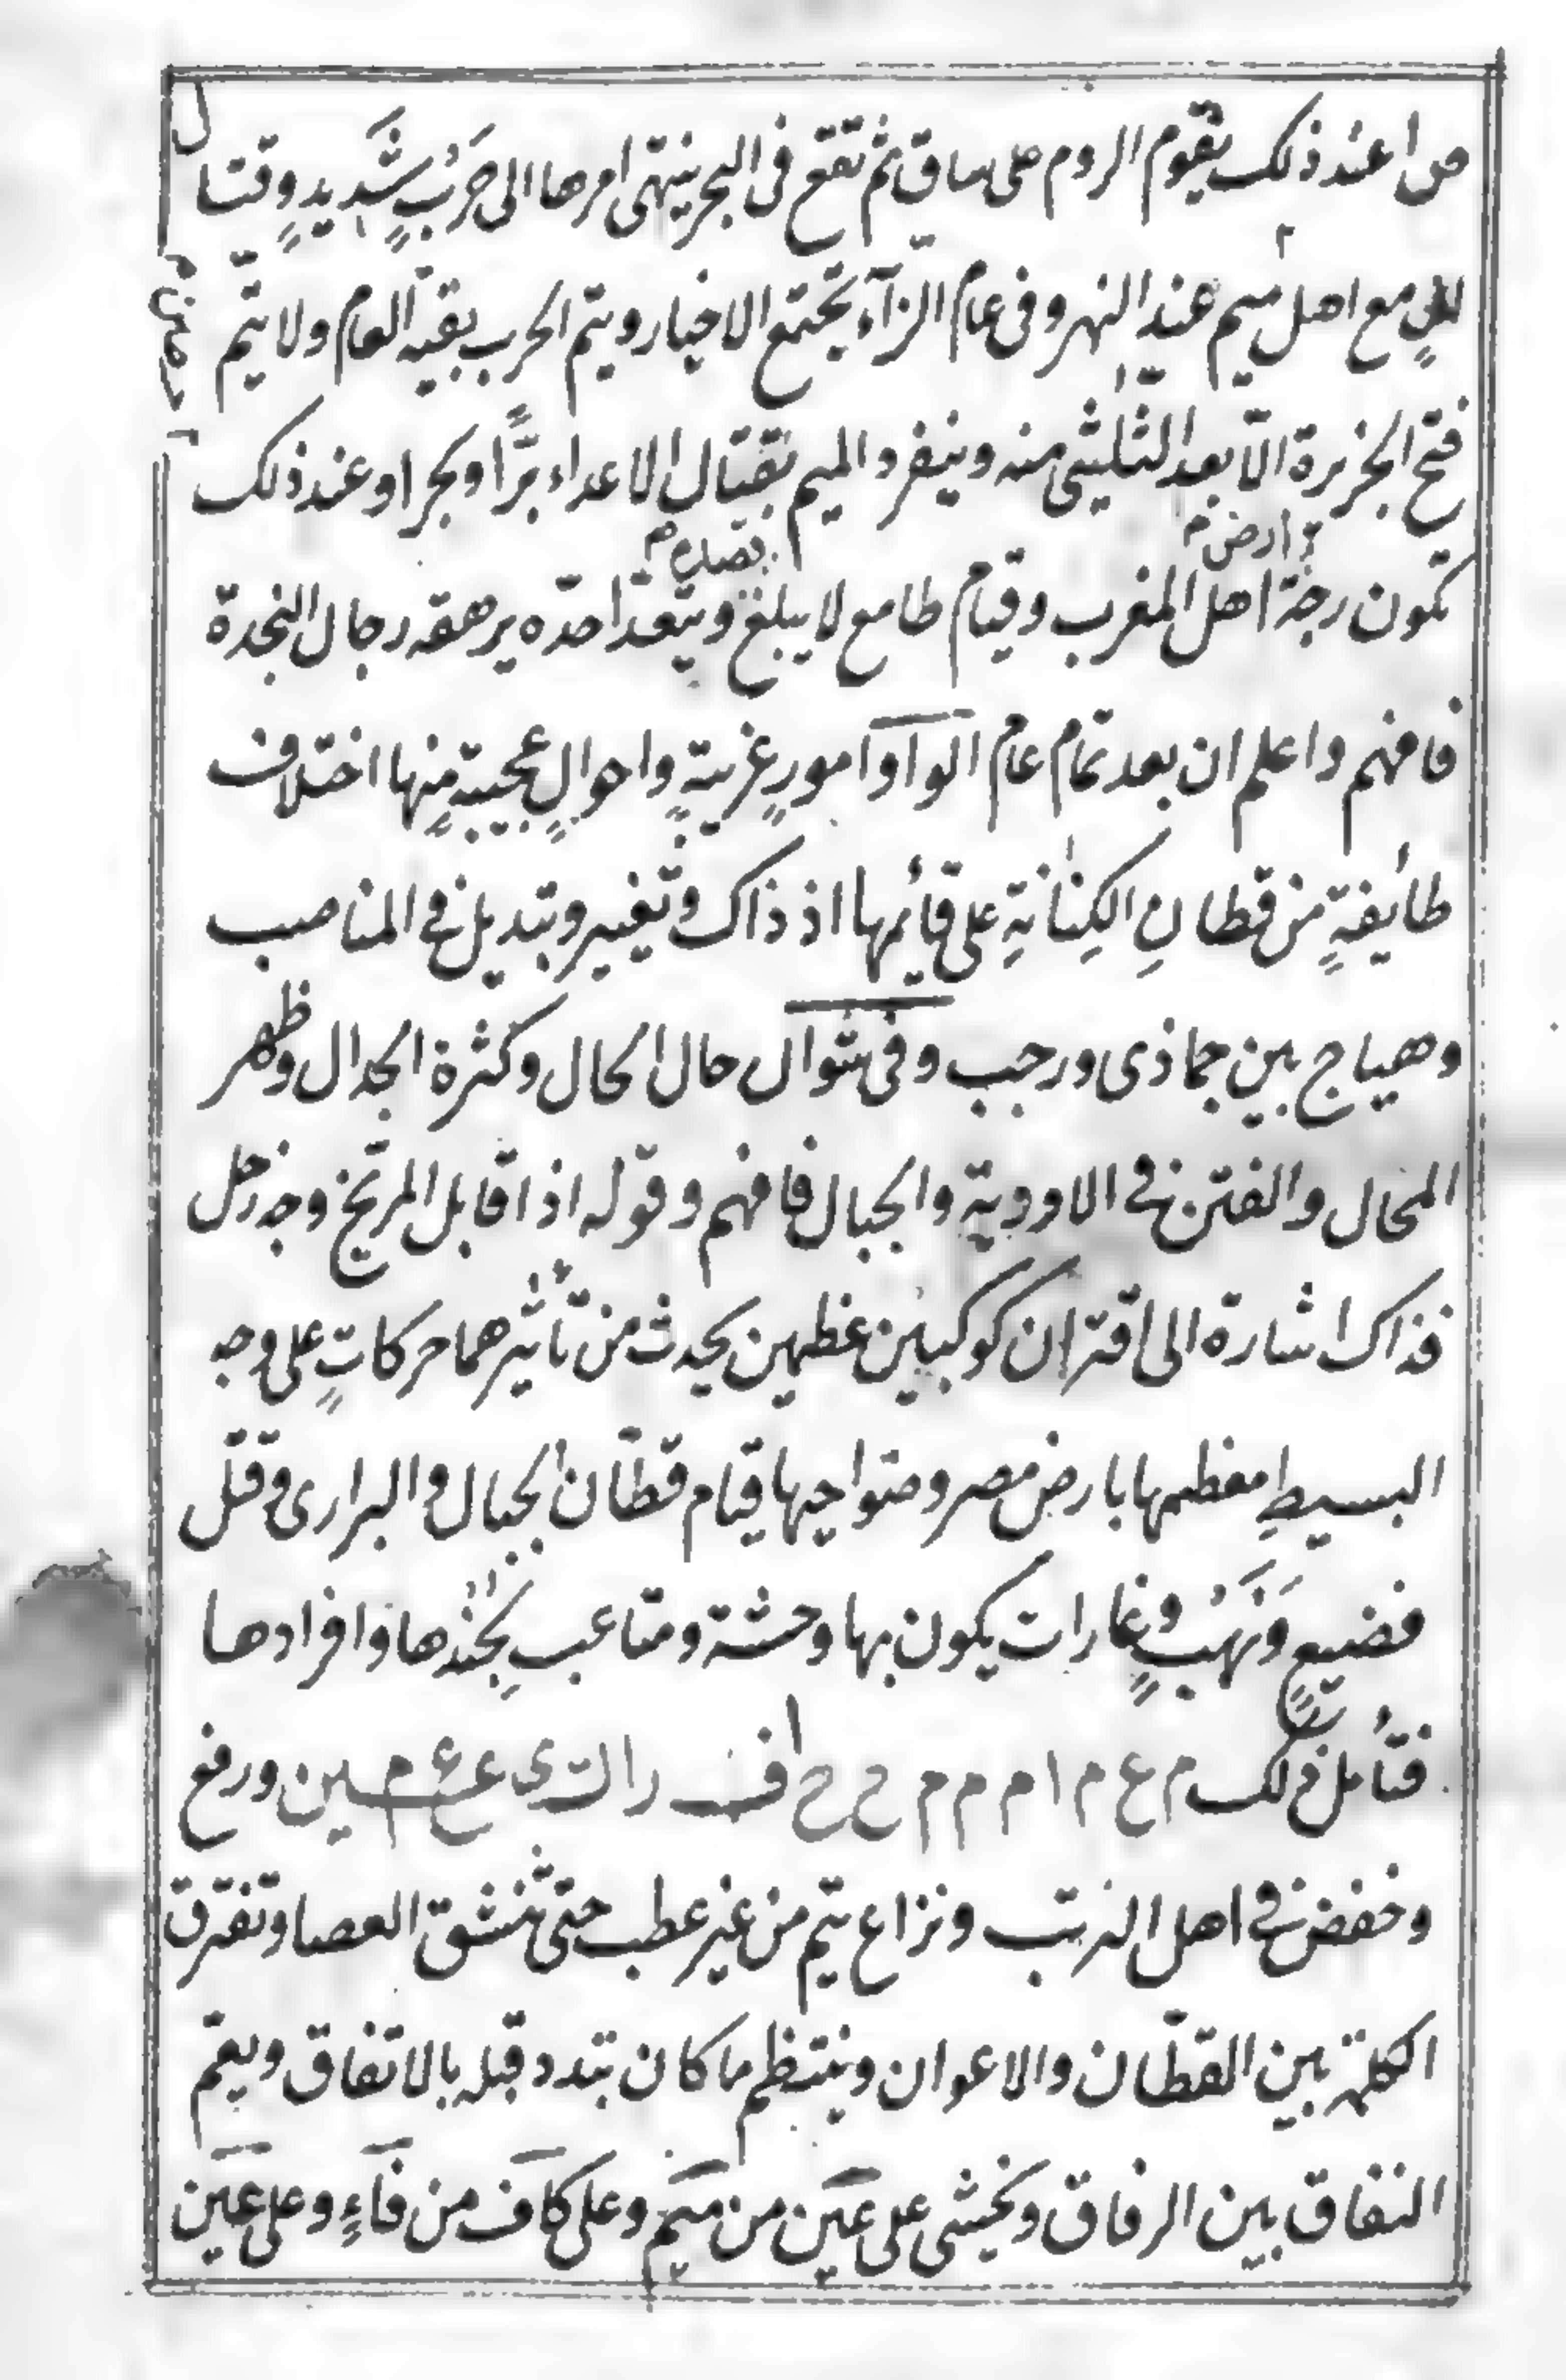 ص ا عند ذلك يقوم الروم على ساق ثم تقع فى البحر ينتهى امرها الى حَرْبٍ شَّديدٍ وقتال
للٍ مع اهل ميم عند النهر وفى عام الزآء تجتمع الاخيار ويتم الحرب بقية العام ولا يتم
فتح الجزيرة الّا بعد الثلثى منه وينفرد الميم بقتال الاعداء برًّا وبحرا وعند ذلك
ارض
قصده
تكون رجة اهل المغرب وقيام طامع لا يبلغ ويتعدا حدّه يرهقه رجال النجدة
فافهم واعلم ان بعد تمام عام الواو آ امورٍ غريبةٍ واحوالٍ عجيبةٍ منها اختلاف
طائفةٍ من قطانِ الكِنانةِ على قائمها اذ ذاك وتغيير وتبديل فى المناصب
وهياج بين جماذى ورجب وفى شوال حال الحال وكثرة الجدال وظهر
المحال والفتن فى الاودية والجبال فافهم وقوله اذا قابل المريخ وجه زحل
فذاك اشارة الى اقتران كوكبين عظيمين يحدث من تأثيرهما حركاتٍ على وجه
البسيطِ معظمها بارض مصر وضواحيها قيام قطّان الجبال والبرارى وقتل
فضيعٍ وَنَهْبٍ وغارات يكون بها وحشة ومتاعب بِجُندها وافرادها
فتأمل ذلك م ع م ا م م م ح ح اف راك ى ع ع م سين ورفع
وخفض فى اهل الرتب ونزاع يتم من غير عطب حتى تنشق العصا وتفترق
الكلمة بين القطّان والاعوان وينتظم ما كان تبدد قبله بالاتفاق ويعم
النفاق بين الرفاق ويخشى على عين من ميم وعلى كاف من فآءٍ وعلى عين